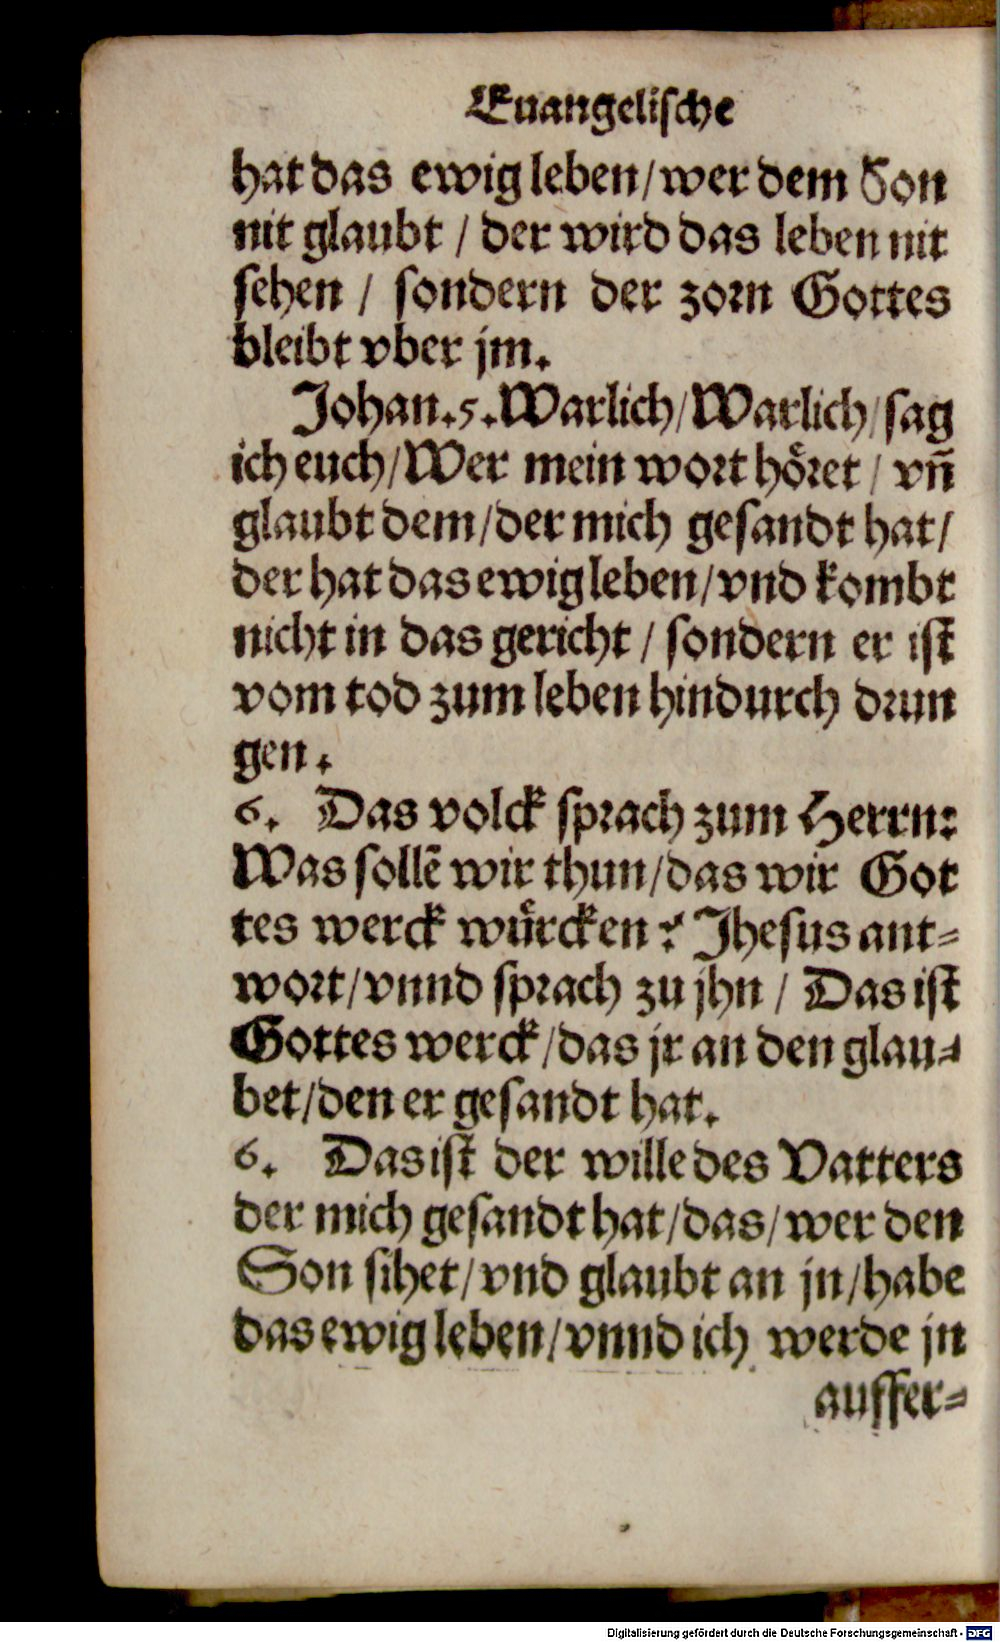 Euangelische
hat das ewig leben/ wer dem Son
nit glaubt / der wird das leben nit
sehen / sondern der zorn Gottes
bleibt vber jm.
Johan. 5. Warlich/ Warlich/ sag
ich euch/ Wer mein wort hoͤret / vñ
glaubt dem/ der mich gesandt hat/
der hat das ewig leben/ vnd kombt
nicht in das gericht / sondern er ist
vom tod zum leben hindurch drun
gen.
6. Das volck sprach zum Herrn:
Was sollẽ wir thun/ das wir Got
tes werck wuͤrcken? Jhesus ant-
wort/ vnnd sprach zu jhn / Das ist
Gottes werck/ das jr an den glau-
bet/ den er gesandt hat.
6. Das ist der wille des Vatters
der mich gesandt hat/ das/ wer den
Son sihet/ vnd glaubt an jn/ habe
das ewig leben/ vnnd ich werde jn
auffer-
Digitalisierung gefördert durch die Deutsche Forschungsgemeinschaft - DFG